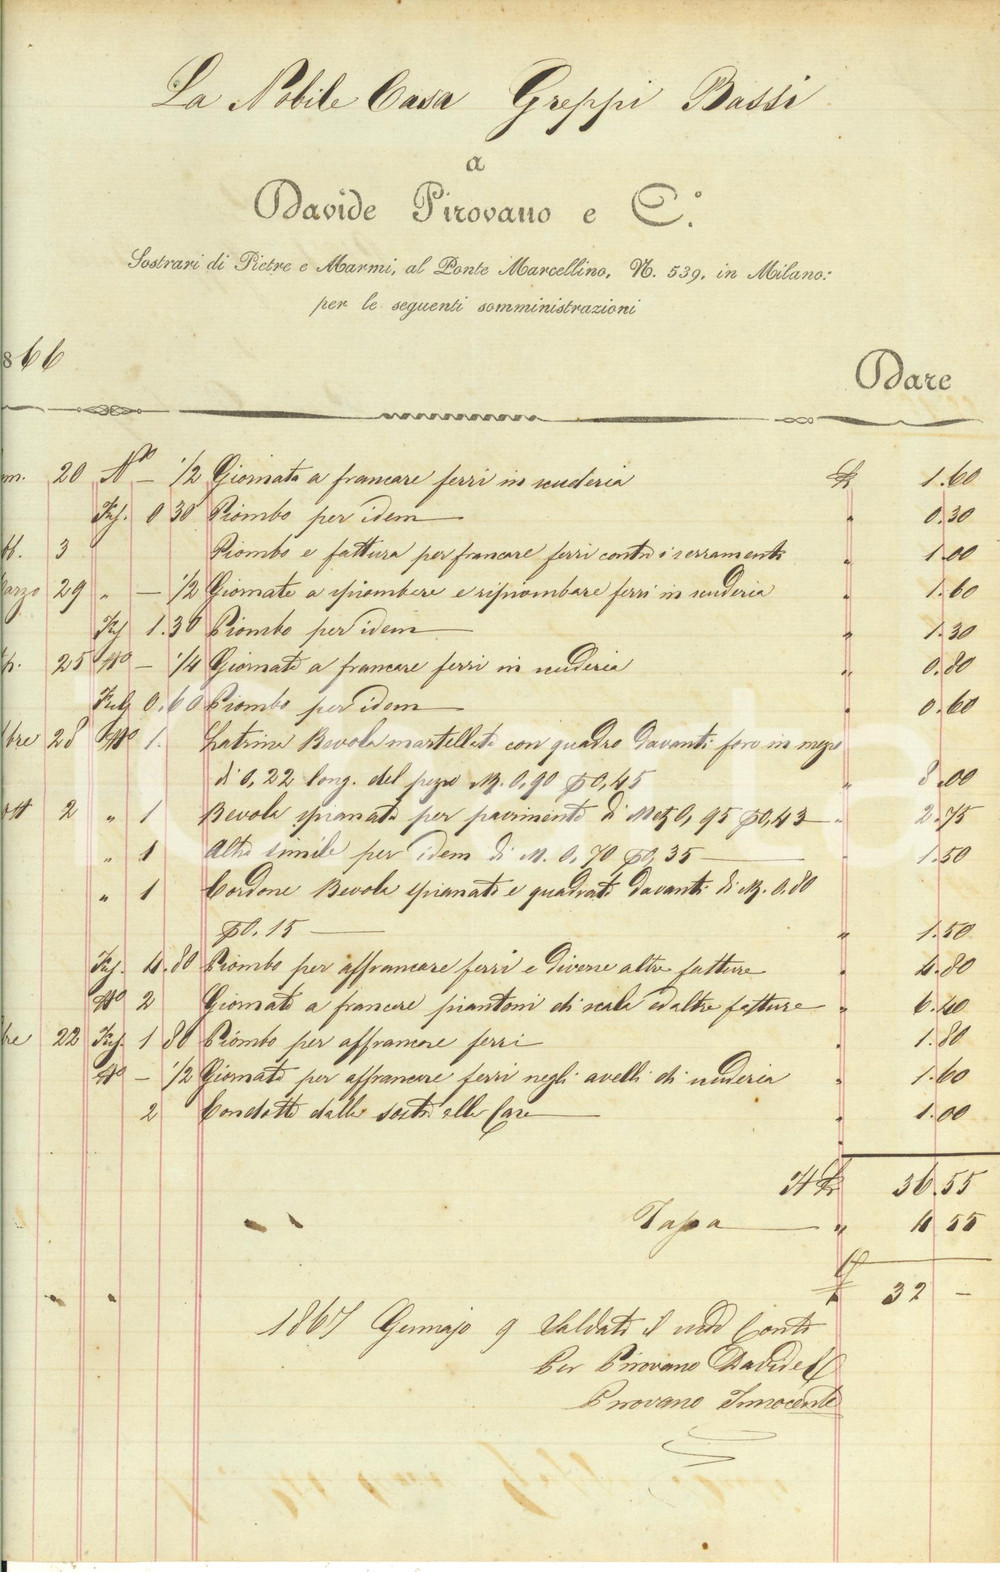 La Nobile Casa Greppi Bassi
a
Davide Pirovano e C.°
Sostrari di Pietre e Marmi, al Ponte Marcellino, N. 539, in Milano:
per le seguenti somministrazioni
866
Dare
20 N° — 1/2 Giornata a francare ferri in scuderia 1.60
Kg. 0 30 Piombo per idem — " 0.30
3 Piombo e fattura per francare ferri contro i serramenti " 1.00
arzo 29 " — 1/2 Giornate a spiombare e ripiombare ferri in scuderia " 1.60
Kg 1.30 Piombo per idem — " 1.30
25 N° — 1/4 Giornate a francare ferri in scuderia " 0.80
0.60 Piombo per idem — " 0.60
bre 28 N° 1. Latrina Bevola martellata con quadro davanti foro in mezo
di 0,22 long. del pezzo M. 0,90 p 0,45 " 8.00
ott 2 " 1 Bevola spianata per pavimento di 0,95 p 0,43 — " 2.75
" 1 Altra simile per idem di M. 0,70 p 0,35 — " 1.50
" 1 Cordone Bevola spianato e quadrato davanti di M. 0.80
p 0.15 — " 1.50
Kg. 4.80 Piombo per affrancare ferri e diverse altre fatture " 4.80
N° 2 Giornate a francare piantoni di scala ed altre fatture " 6.40
bre 22 Kg. 1 80 Piombo per affrancare ferri " 1.80
N° — 1/2 Giornate per affrancare ferri negli avelli di scuderia " 1.60
2 Condotte dalla sostra alla Casa — " 1.00
36.55
— " 4 55
32 —
1867 Gennajo 9 Saldato il Conto
Per Pirovano Davide
Pirovano Innocente